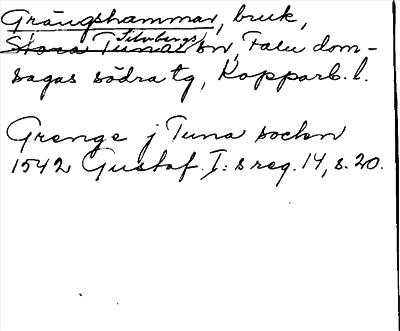 Grängshammar, bruk,
Silvbergs
Stora Tuna sn, Falu dom-
sagas södra tg, Kopparb. l.
Grenge j Tuna socken
1542 Gustaf I:s reg. 14, s. 20.